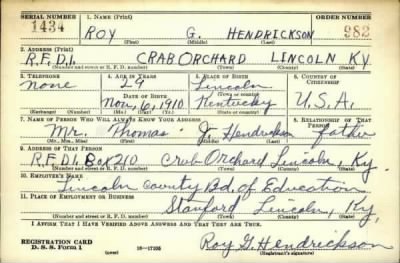 SERIAL NUMBER 1. NAME (Print) ORDER NUMBER
1434 ROY G. HENDRICKSON 982
(First) (Middle) (Last)
2. ADDRESS (Print)
R.F.D.1. CRAB ORCHARD LINCOLN KY.
(Number and street or R. F. D. number) (Town) (County) (State)
3. TELEPHONE 4. AGE IN YEARS 5. PLACE OF BIRTH 6. COUNTRY OF CITIZENSHIP
none 29 Lincoln
DATE OF BIRTH (Town or county)
Nov. 6, 1910 Kentucky U.S.A.
(Exchange) (Number) (Mo.) (Day) (Yr.) (State or country)
7. NAME OF PERSON WHO WILL ALWAYS KNOW YOUR ADDRESS 8. RELATIONSHIP OF THAT PERSON
Mr. Thomas J. Hendrickson father
(Mr., Mrs., Miss) (First) (Middle) (Last)
9. ADDRESS OF THAT PERSON
R.F.D1. Box 210 Crab Orchard Lincoln, Ky.
(Number and street or R. F. D. number) (Town) (County) (State)
10. EMPLOYER'S NAME
Lincoln County Bd. of Education
11. PLACE OF EMPLOYMENT OR BUSINESS
Stanford Lincoln, Ky.
(Number and street or R. F. D. number) (Town) (County) (State)
I AFFIRM THAT I HAVE VERIFIED ABOVE ANSWERS AND THAT THEY ARE TRUE.
REGISTRATION CARD
D. S. S. Form 1 (over) 16—17105 Roy G. Hendrickson
(Registrant's signature)